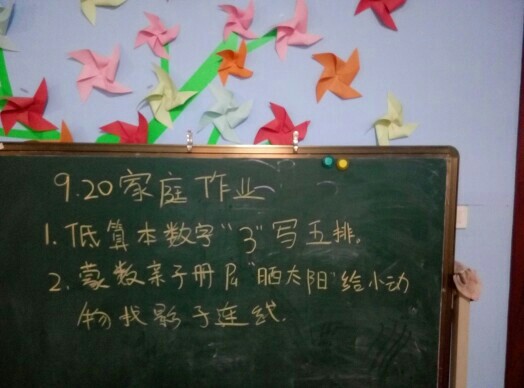 9.20家庭作业
1.低算本数字"3"写五排,
2.蒙数亲子册P4"晒太阳"给小动
物找影子连线.